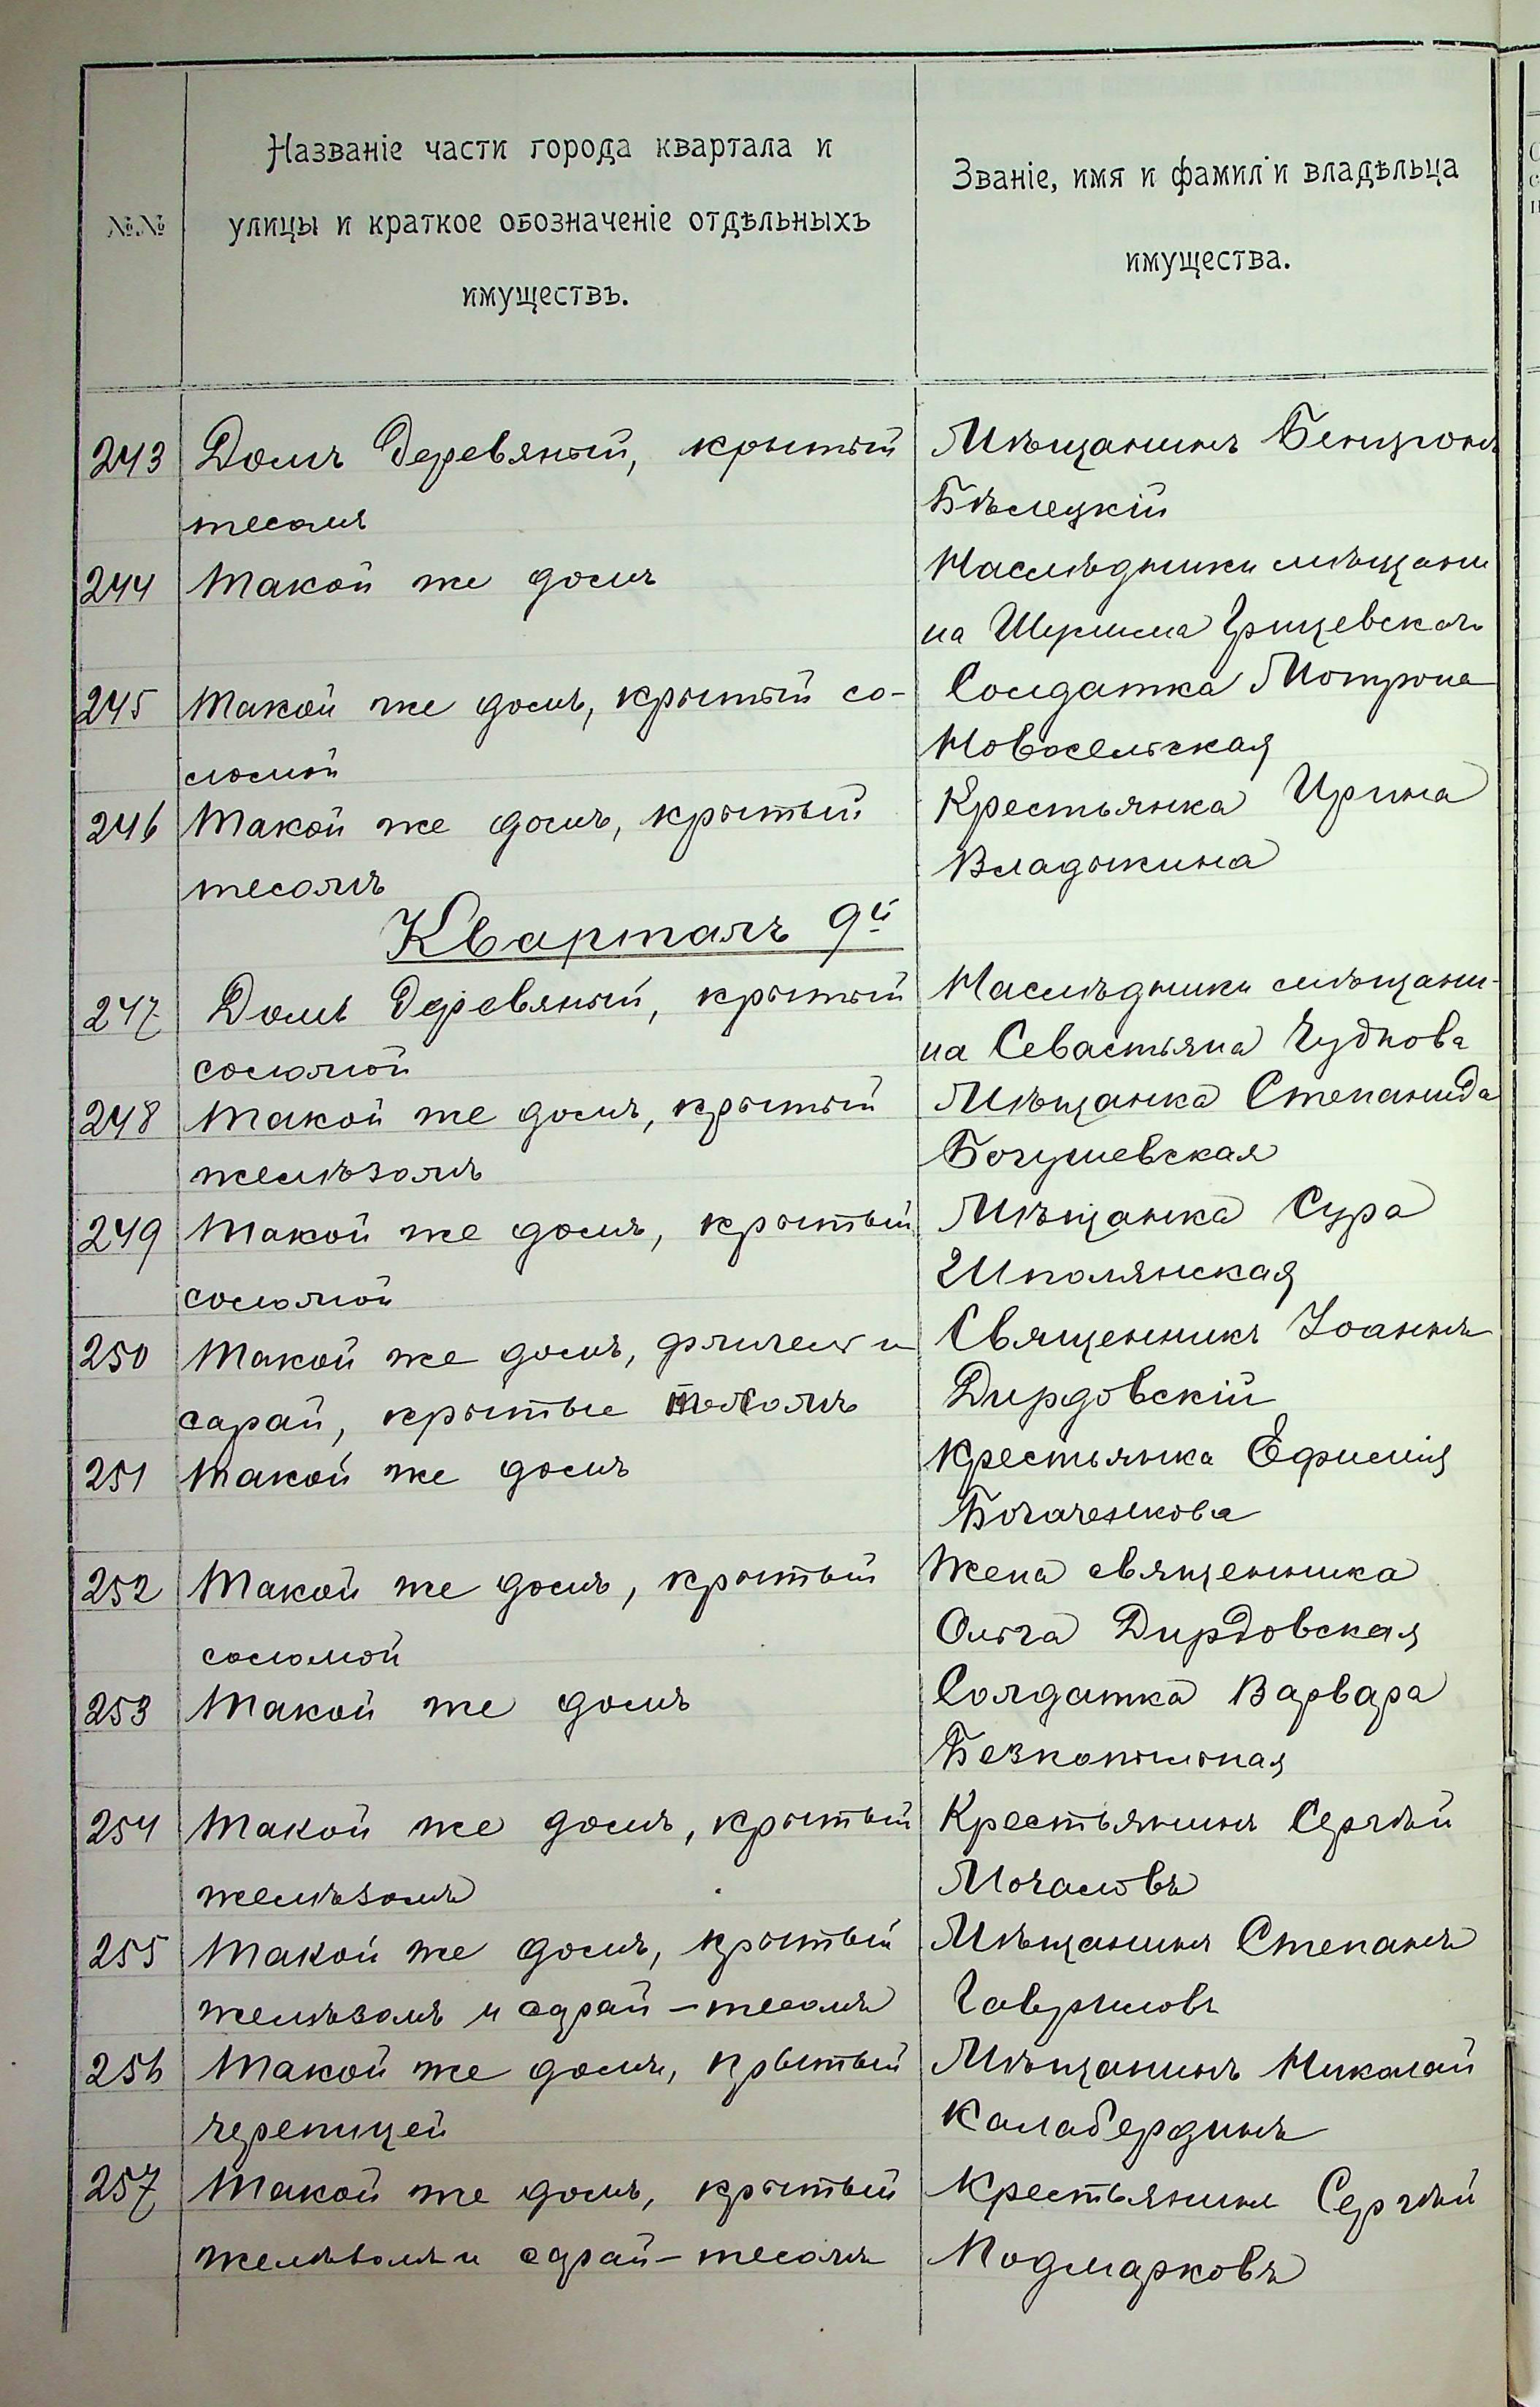 №№
Названіе части города квартала и
улицы и краткое обозначеніе отдѣльныхъ
имуществъ.
Званіе, имя и фамиліи владѣльца
имущества.
243 Домъ деревяный, крытый
тесомъ
Мѣщанинъ Бенціонъ
Бѣлецкій
244 Такой же домъ
Наслѣдники мѣщани
на Шулима Грищевскаго
245 Такой же домъ, крытый со-
ломой
Солдатка Мотрона
Новосельская
246 Такой же домъ, крытый
тесомъ
Крестьянка Ирина
Владыкина
Кварталъ 9й
247 Домъ деревяный, крытый
соломой
Наслѣдники мѣщани-
на Севастьяна Чуднова
248 Такой же домъ, крытый
желѣзомъ
Мѣщанка Степанида
Богушевская
249 Такой же домъ, крытый
соломой
Мѣщанка Сура
Шполянская
250 Такой же домъ, флигель и
сарай, крытые тесомъ
Священникъ Іоаннъ
Дирдовскій
251 Такой же домъ
Крестьянка Ефимія
Богаченкова
252 Такой же домъ, крытый
соломой
Жена священника
Ольга Дирдовская
253 Такой же домъ
Солдатка Варвара
Безкопыльная
254 Такой же домъ, крытый
желѣзомъ
Крестьянинъ Сергѣй
Мочаловъ
255 Такой же домъ, крытый
желѣзомъ и сарай - тесомъ
Мѣщанинъ Степанъ
Гавриловъ
256 Такой же домъ, крытый
черепицей
Мѣщанинъ Николай
Калабердинъ
257 Такой же домъ, крытый
желѣзомъ и сарай - тесомъ
Крестьянинъ Сергѣй
Подмарковъ